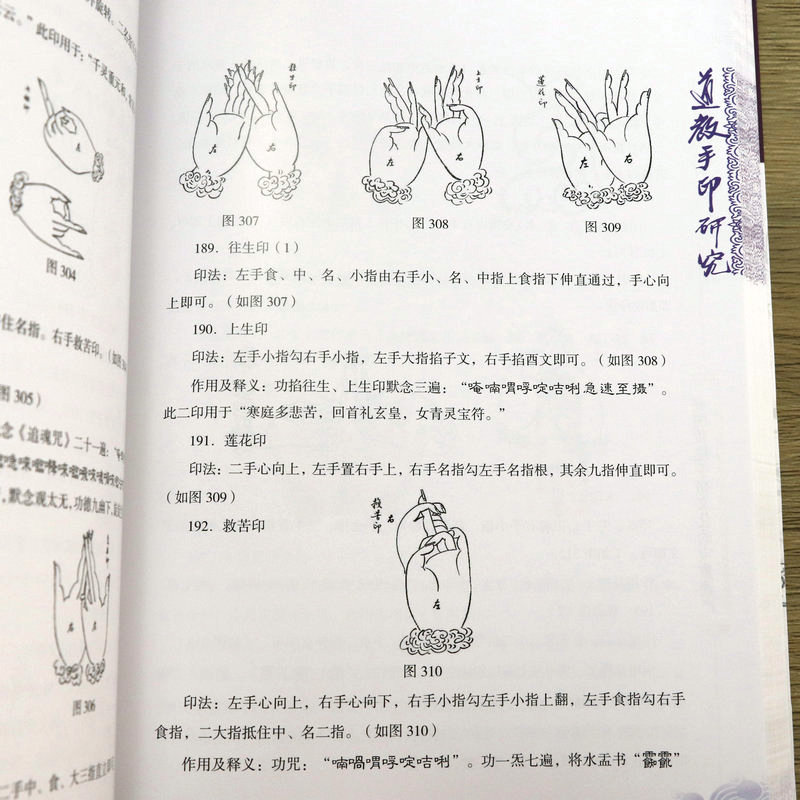 此印用于：“千灵重元和，
图 304
住名指。右手救苦印。（如图
305）
念《追魂咒》二十一遍：
，默念观太无，功德九幽下，
右
左
图 306
二手中、食、大三指直立
道教手印研究
往生印
左
右
图 307
上生印
左
右
图 308
莲花印
左
右
图 309
189．往生印（1）
印法：左手食、中、名、小指由右手小、名、中指上食指下伸直通过，手心向
上即可。（如图 307）
190．上生印
印法：左手小指勾右手小指，左手大指掐子文，右手掐酉文即可。（如图 308）
作用及释义：功掐往生、上生印默念三遍：“唵喃喟呼啶咭唎急速至摄”。
此二印用于“寒庭多悲苦，回首礼玄皇，女青灵宝符。”
191．莲花印
印法：二手心向上，左手置右手上，右手名指勾左手名指根，其余九指伸直即可。
（如图 309）
192．救苦印
救苦印
右
左
图 310
印法：左手心向上，右手心向下，右手小指勾左手小指上翻，左手食指勾右手
食指，二大指抵住中、名二指。（如图 310）
作用及释义：功咒：“喃喎喟呼啶咭唎”。功一炁七遍，将水盂书“